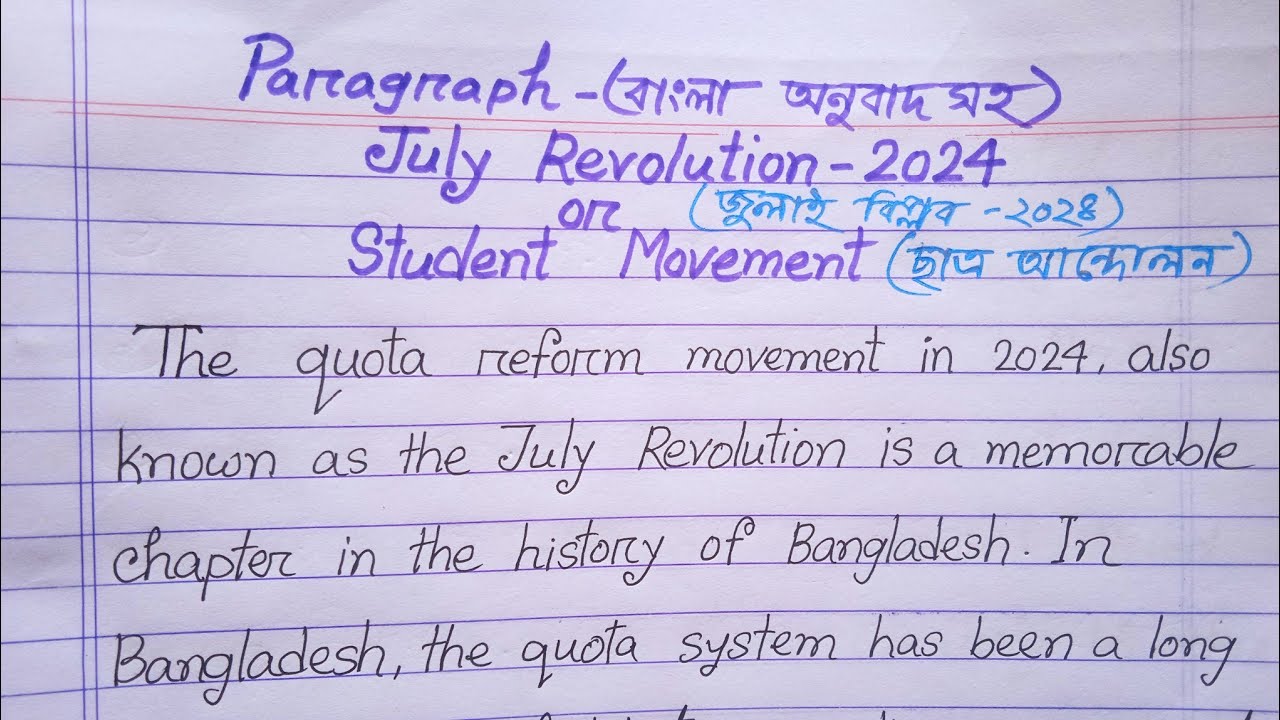 Paragraph - (বাংলা অনুবাদ সহ)
July Revolution - 2024
or (জুলাই বিপ্লব - ২০২৪)
Student Movement (ছাত্র আন্দোলন)
The quota reform movement in 2024, also
known as the July Revolution is a memorable
chapter in the history of Bangladesh. In
Bangladesh, the quota system has been a long